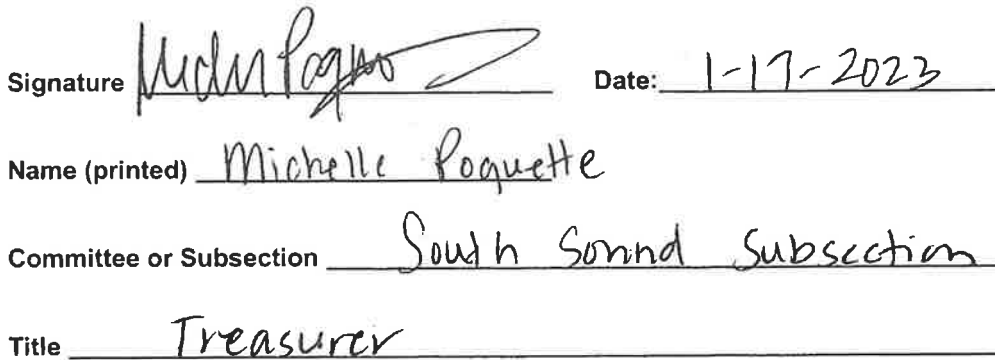 Signature Date: 1-17-2023
Name (printed) Michelle Poquette
Committee or Subsection South Sound Subsection
Title Treasurer